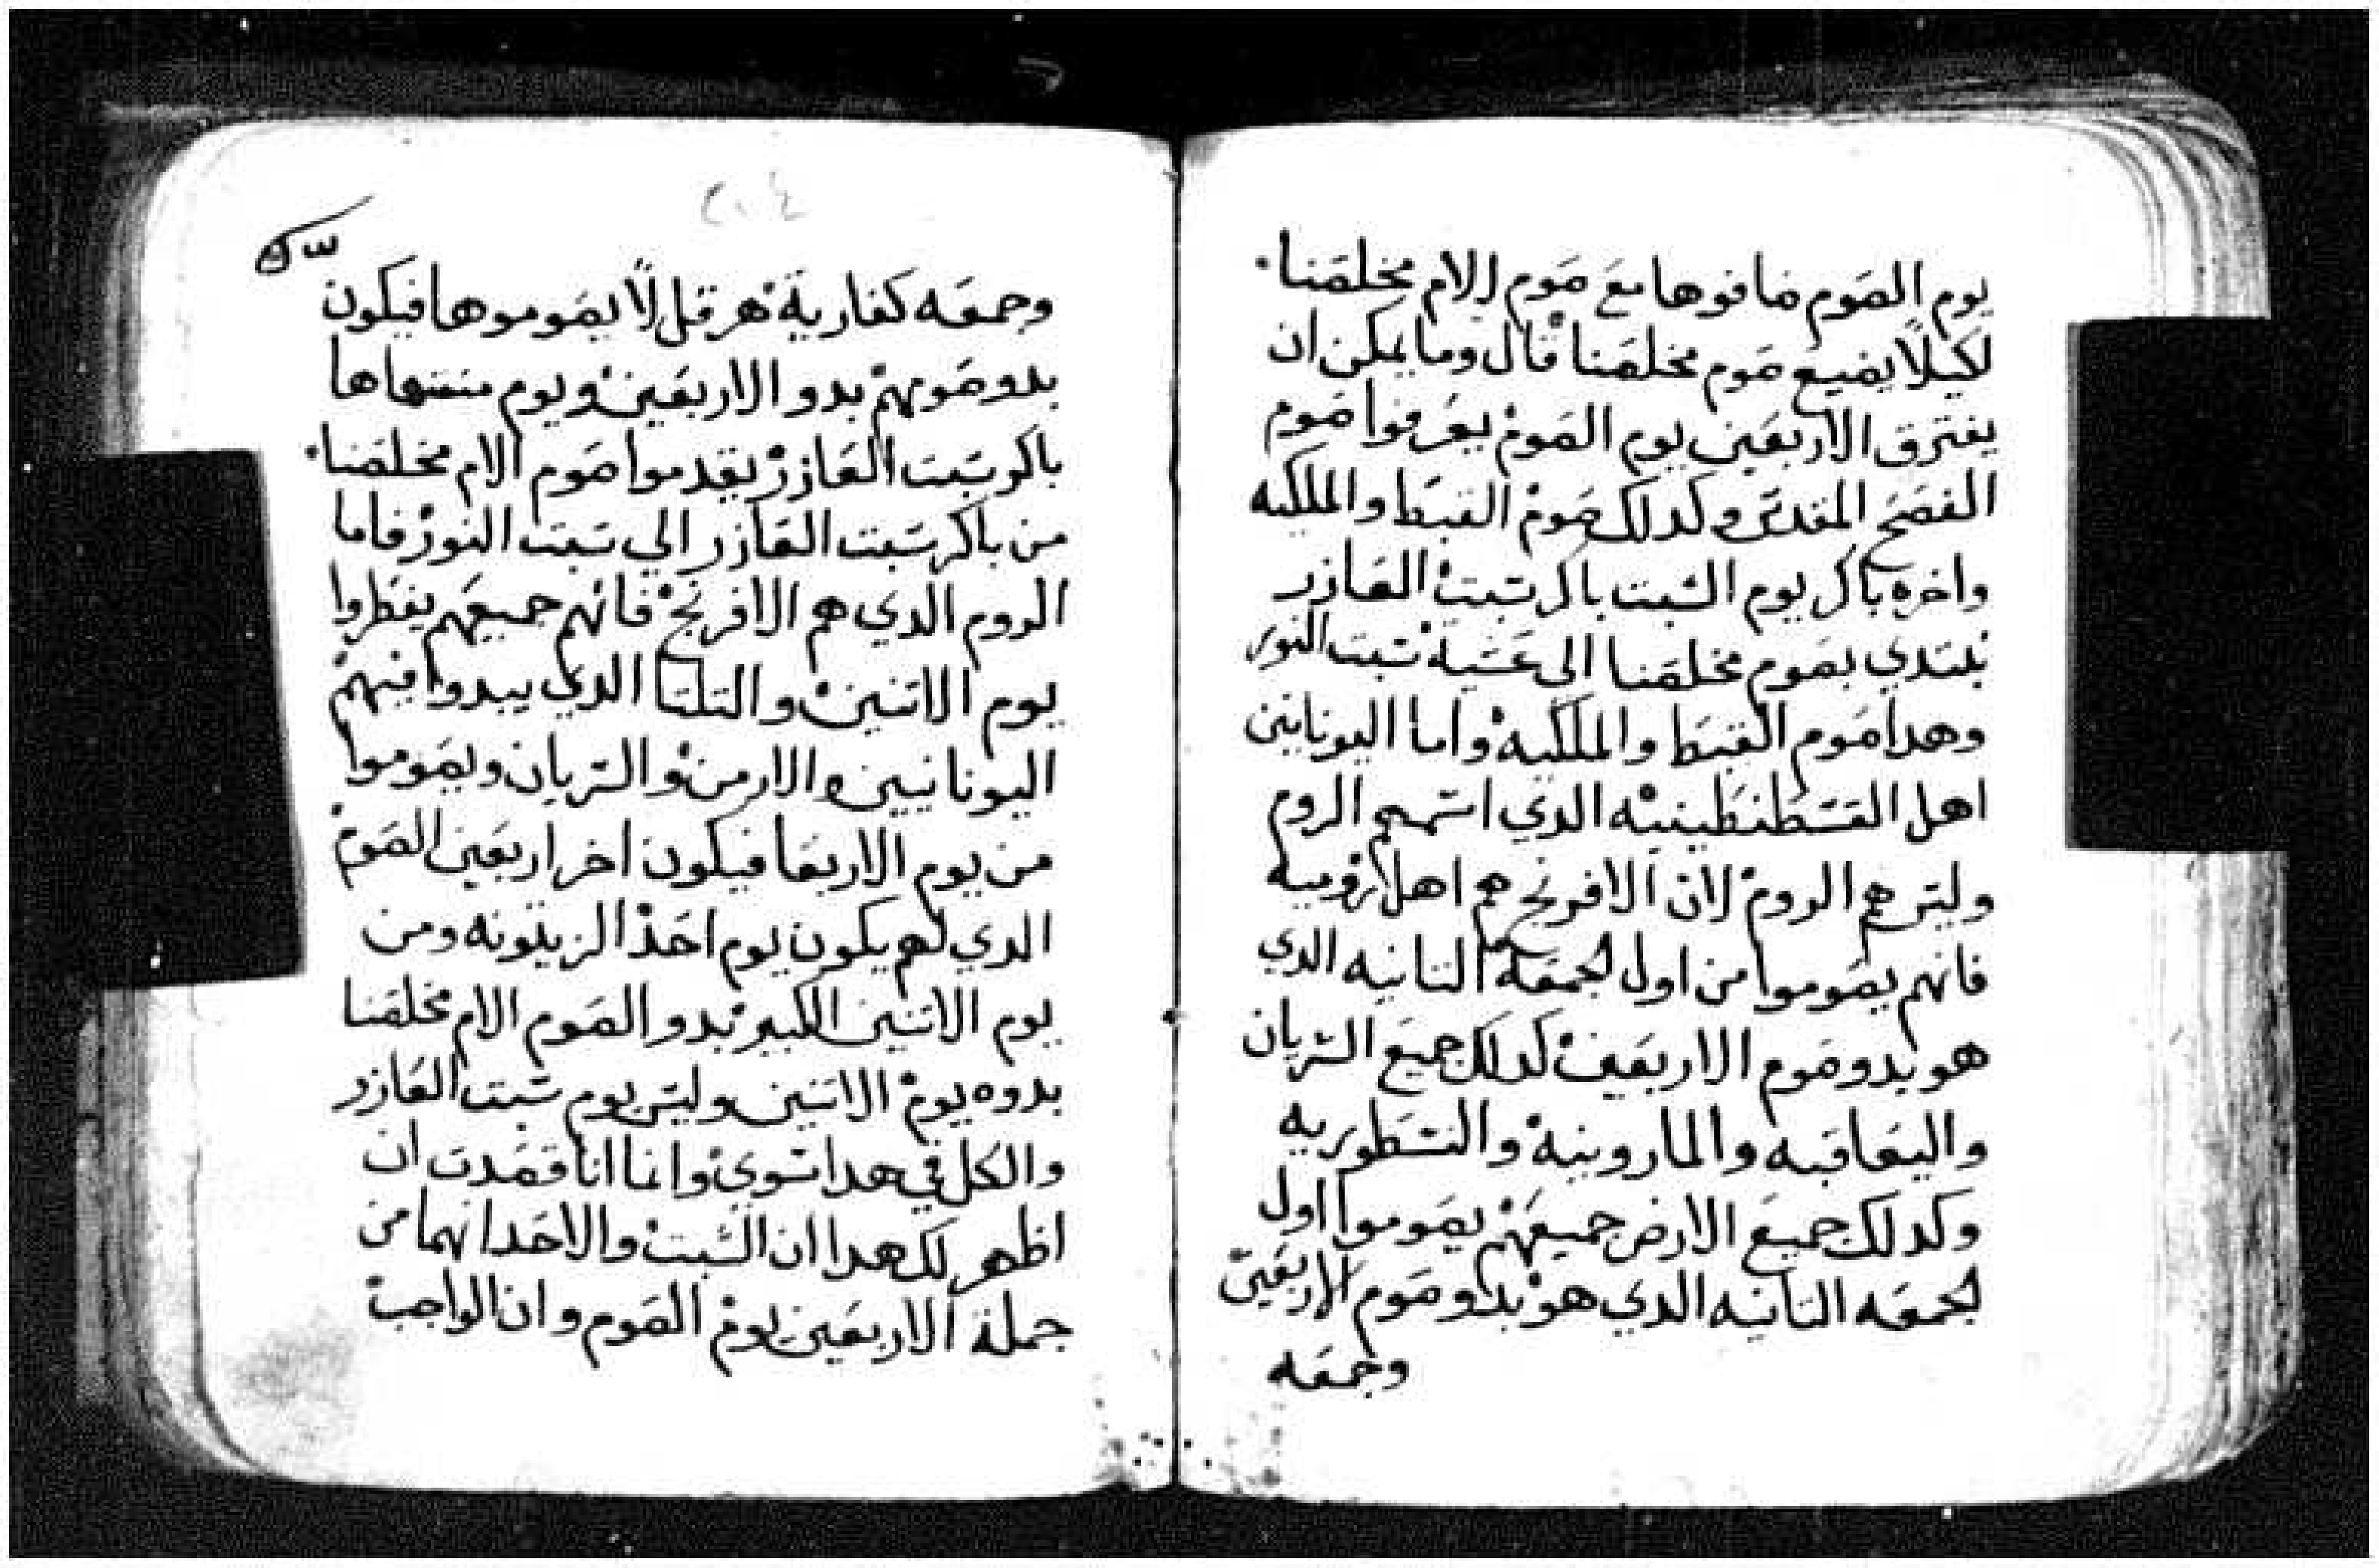 يوم الصوم ضافوها مع صوم الام مخلصنا
لكيلا يضيع صوم مخلصنا قال وما يمكن ان
يفترق الاربعين يوم الصوم يعرفوا صوم
الفصح المقدس وكدلك صوم القبط والملكيه
واخره باكر يوم السبت باكر سبت العازر
نبتدي بصوم مخلصنا الي عشية سبت النور
وهدا صوم القبط والملكيه واما اليونانين
اهل القسطنطينيه الدي اسمهم الروم
وليس هم الروم لان الافرنج هم اهل روميه
فانهم يصوموا من اول الجمعه التانيه الدي
هو بدو صوم الاربعين كدلك جميع السريان
واليعاقبه والمارونية والنسطوريه
وكدلك جميع الارض جميعهم يصوموا اول
الجمعه التانيه الدي هو بدو صوم الاربعين
وجمعه
٢٠٤
وجمعه كفارية هرقل لا يصوموها فيكون
بدو صومهم بدو الاربعين ويوم منتهاها
باكر سبت العازر يقدموا صوم الام مخلصنا
من باكر سبت العازر الي سبت النور فاما
الروم الدي هم الافرنج فانهم جميعهم يفطروا
يوم الاتنين والتلتا الدي يبدوا فيهم
اليونانيين والارمن والسريان ويصوموا
من يوم الاربعا فيكون اخر اربعين الصوم
الدي لهم يكون يوم احد الزيتونه ومن
يوم الاتنين الكبير بدو الصوم الام مخلصنا
بدوه يوم الاتنين وليس يوم سبت العازر
والكل في هدا سوي وانما انا قصدت ان
اظهر لك هدا ان السبت والاحد انهما من
جملة الاربعين يوم الصوم وان الواجب